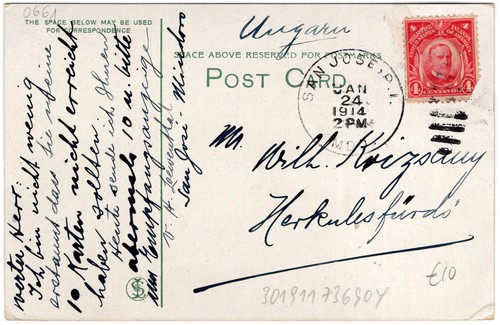 0661
THE SPACE BELOW MAY BE USED
FOR CORRESPONDENCE
Ungarn
SPACE ABOVE RESERVED FOR POSTMARKS
POST CARD
SAN JOSE, P.I.
JAN
24
1914
2 PM
MDO
4 CENTAVOS 4
werter Herr:
Ich bin nicht wenig
erstaunt dass Sie meine
10 Karten nicht erreicht
haben sollten.
Heute sende ich Ihnen
abermals 10 u. bitte
um Empfangsanzeige
San Jose Mindoro
M. Wilh. Krizsany
Herkulesfürdö
£10
301911736904